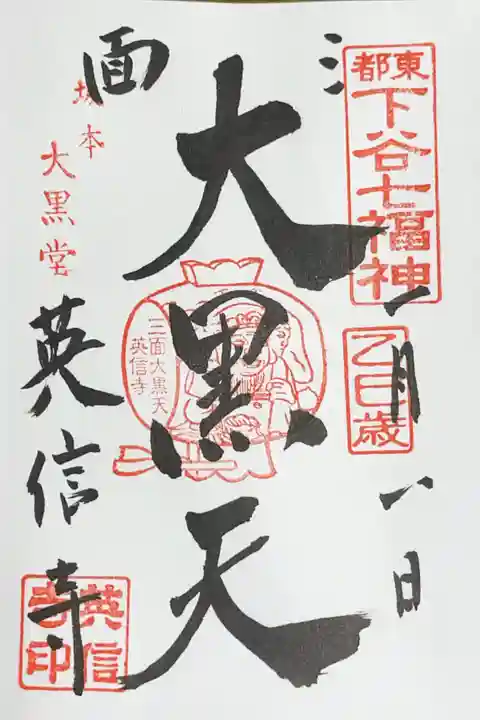 三面
東都
下谷七福神
乙巳歳
一月一日
大黒天
三面大黒天
英信寺
坂本
大黒堂
英信寺
英信寺印